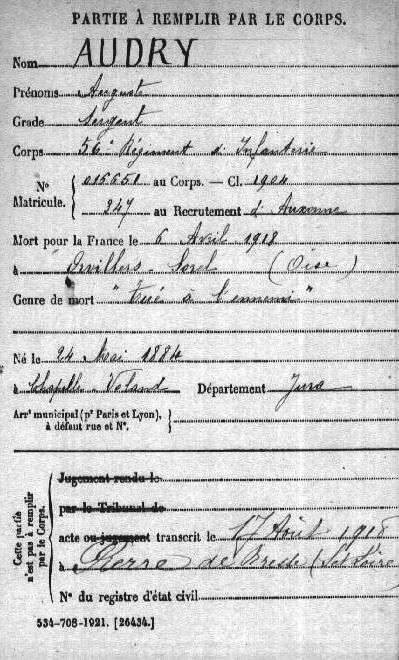 PARTIE À REMPLIR PAR LE CORPS.
Nom AUDRY
Prénoms Auguste
Grade Sergent
Corps 56e Régiment d'Infanterie
N° Matricule. { 015551 au Corps. — Cl. 1904
247 au Recrutement d'Auxonne
Mort pour la France le 6 Avril 1918
à Orvillers-Sorel (Oise)
Genre de mort "Tué à l'ennemi"
Né le 24 Mai 1884
à Chapelle-Voland Département Jura
Arrt municipal (pr Paris et Lyon), à défaut rue et N°. }
Cette partie n'est pas à remplir par le Corps.
Jugement rendu le
par le Tribunal de
acte ou jugement transcrit le 17 Août 1918
à Pierre de Bresse (Set Loire
N° du registre d'état civil
534-708-1921. [26434.]